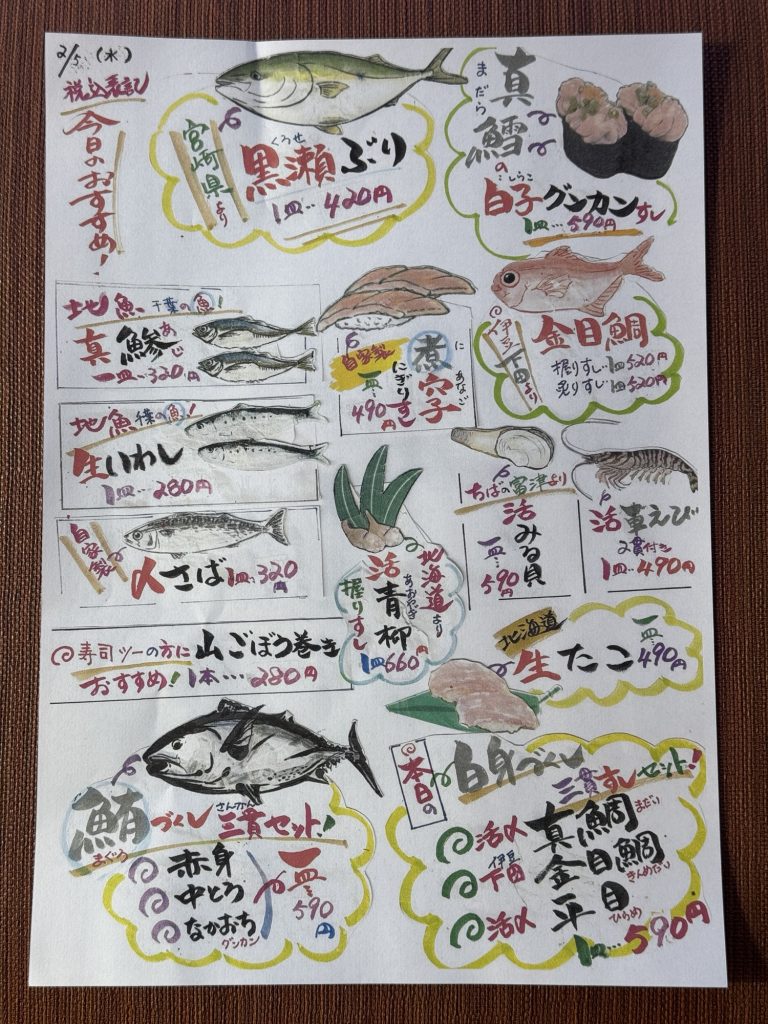 2/5 (水)
税込表記
今日のおすすめ!
宮崎県より
くろせ
黒瀬ぶり
1皿…420円
まだら
真鱈の
しらこ
白子グンカンすし
1皿…590円
地魚 千葉の魚!
真鯵
あじ
一皿…320円
自家製
煮穴子
に あなご
にぎりすし
一皿…490円
伊豆下田より
金目鯛
握りすし…1皿520円
炙りすし…1皿520円
地魚 千葉の魚!
生いわし
1皿…280円
自家製
〆さば 1皿…320円
北海道より
活青柳
あおやぎ
握りすし
1皿660円
ちばの富津より
活みる貝
一皿…590円
活車えび
2貫付き
1皿…490円
寿司ツーの方に 山ごぼう巻き
おすすめ! 1本…280円
北海道
生たこ
一皿…490円
鮪づくし 三貫セット!
まぐろ
さんかん
赤身
中とろ
なかおち
グンカン
一皿…590円
本日の
白身づくし
三貫すしセット!
活〆 真鯛 まだい
伊豆
下田 金目鯛 きんめだい
活〆 平目 ひらめ
1皿…590円